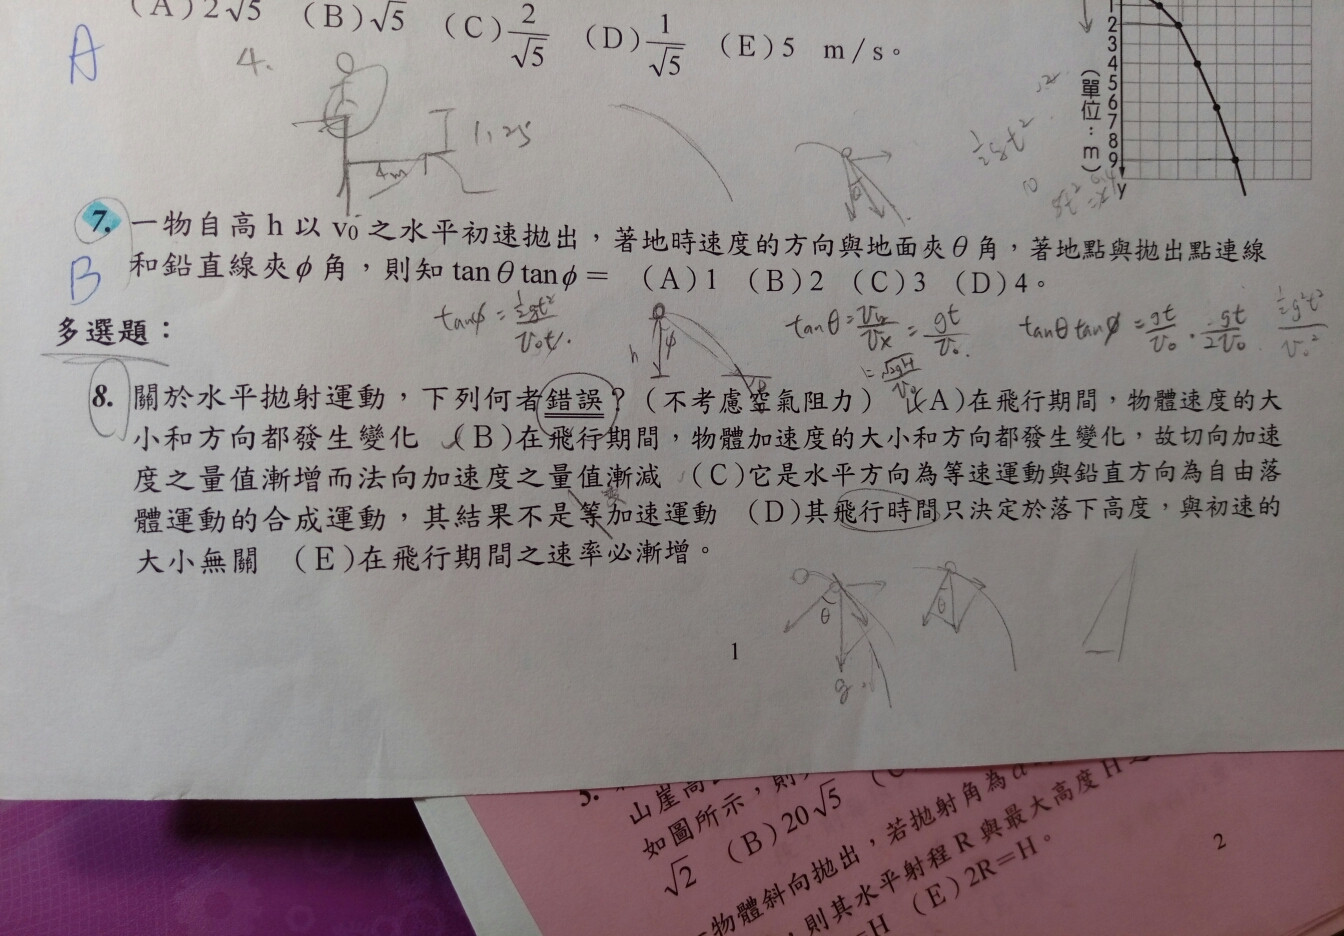 (A) 2√5 (B)√5 (C) 2/√5 (D) 1/√5 (E)5 m/s。
A
4.
1.25
4m
½gt²
1
2
3
4
5
6
7
8
9
y
(單位：m)
7. 一物自高 h 以 v₀ 之水平初速拋出，著地時速度的方向與地面夾 θ 角，著地點與拋出點連線
B
和鉛直線夾 ϕ 角，則知 tan θ tan ϕ = (A) 1 (B) 2 (C) 3 (D) 4。
tanϕ = ½gt²/v₀t
h
ϕ
tanθ = Vy/Vx = gt/v₀
= √2gH/v₀
tanθ tanϕ = gt/v₀ · gt/2v₀
½g²t²/v₀²
多選題：
8. 關於水平拋射運動，下列何者錯誤？（不考慮空氣阻力） (A)在飛行期間，物體速度的大
小和方向都發生變化 (B)在飛行期間，物體加速度的大小和方向都發生變化，故切向加速
度之量值漸增而法向加速度之量值漸減 (C)它是水平方向為等速運動與鉛直方向為自由落
變
體運動的合成運動，其結果不是等加速運動 (D)其飛行時間只決定於落下高度，與初速的
大小無關 (E)在飛行期間之速率必漸增。
θ
θ
g
1
山崖高
如圖所示，則
(B) 20√5
√2
一物體斜向拋出，若拋射角為 α
，則其水平射程 R 與最大高度 H
=H (E) 2R=H。
2